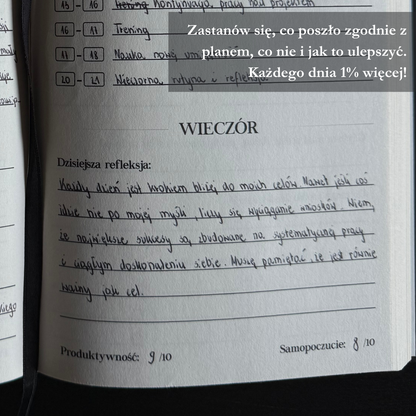 15 - 16 trening kontynuacja pracy nad projektem
16 - 17 Trening
17 - 18 Nauka nowej umiejętności
20 - 21 Wieczorna rutyna i refleksja
Zastanów się, co poszło zgodnie z
planem, co nie i jak to ulepszyć.
Każdego dnia 1% więcej!
WIECZÓR
Dzisiejsza refleksja:
Każdy dzień jest krokiem bliżej do moich celów. Nawet jeśli coś
idzie nie po mojej myśli, liczy się wyciąganie wniosków. Wiem,
że największe sukcesy są zbudowane na systematycznej pracy
i ciągłym doskonaleniu siebie. Muszę pamiętać, że jest równie
ważny jak cel.
Produktywność: 9 /10
Samopoczucie: 8 /10